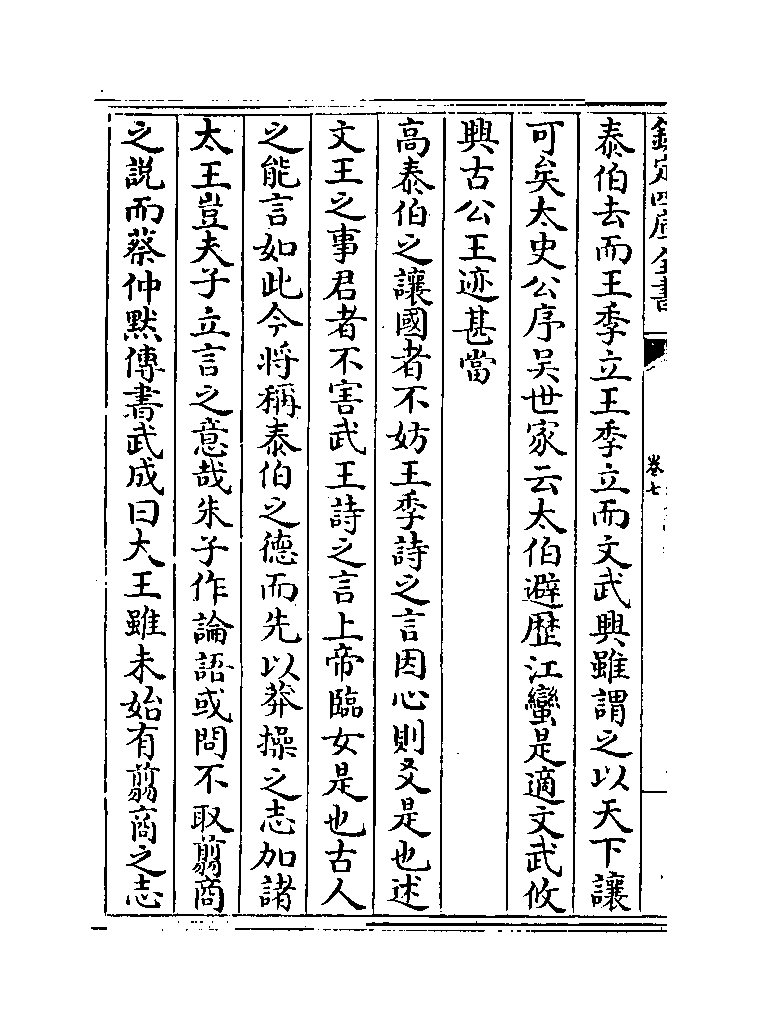 欽定四庫全書
卷七
泰伯去而王季立王季立而文武興雖謂之以天下讓
可矣太史公序吳世家云太伯避歷江蠻是適文武攸
興古公王迹甚當
高泰伯之讓國者不妨王季詩之言因心則友是也述
文王之事君者不害武王詩之言上帝臨女是也古人
之能言如此今將稱泰伯之德而先以莽操之志加諸
太王豈夫子立言之意哉朱子作論語或問不取翦商
之説而蔡仲默傳書武成曰大王雖未始有翦商之志